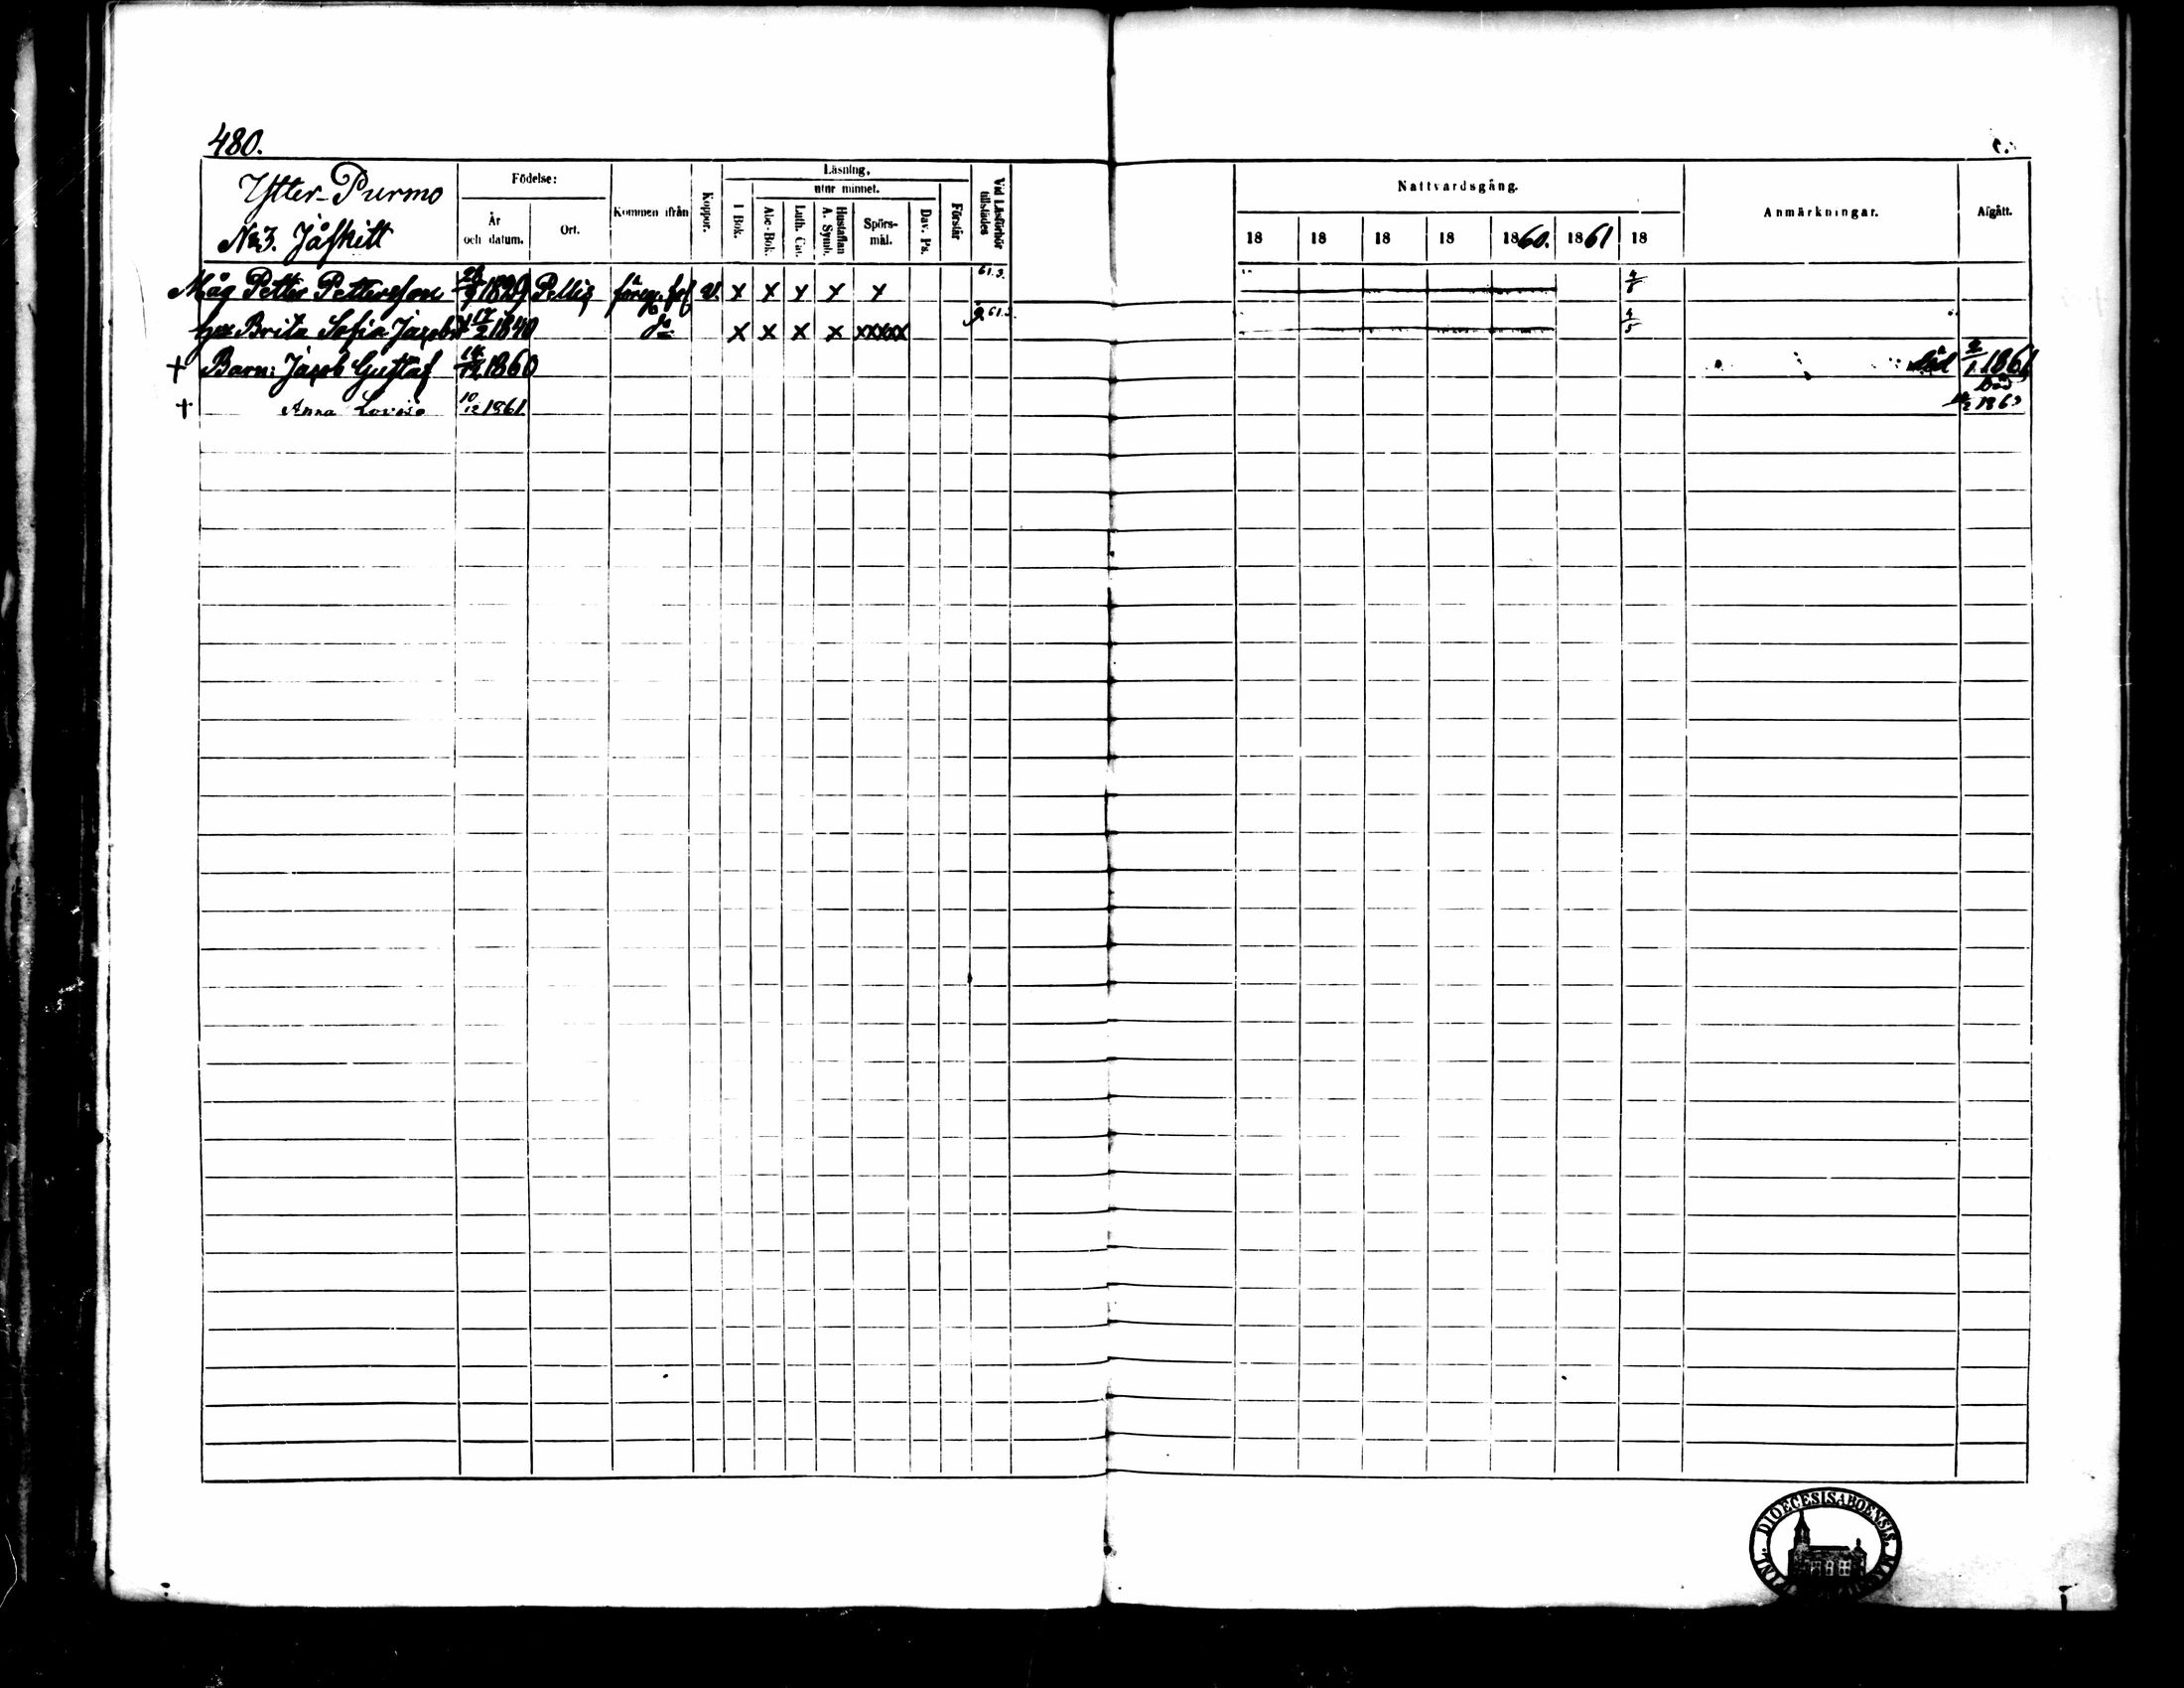 480.
Ytter-Purmo
No 3. Jåfskitt
Födelse:
År och datum.
Ort.
Kommen ifrån
Koppor.
Läsning,
I Bok.
utur minnet.
Abc-Bok.
Luth. Cat.
Hustaflan A. Symb.
Spörs-mål.
Dav. Ps.
Förstår
Vid Läsförhör tillstädes
Nattvardsgång.
18 18 18 18 1860. 1861 18
Anmärkningar.
Afgått.
Måg Petter Pettersson 1829 Pellis föreg. v. x x x x x 61.3.
Brita Sofia Jacobs 17/2 1840 do x x x x xxxxx 61.3. 4/5
† Barn: Jacob Gustaf 14/12 1860 Död 2/1 1861
† Anna Lovisa 10/12 1861 Död /2 1863
FINL. DIOECESIS ABOENSIS.